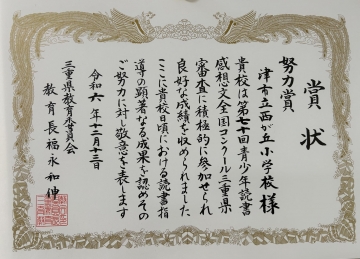 賞状
努力賞
津市立西が丘小学校 様
貴校は第七十回青少年読書
感想文全国コンクール三重県
審査に積極的に参加せられ
良好な成績を収められました
ここに貴校日頃における読書指
導の顕著なる成果を認めその
ご努力に対し敬意を表します
令和六年十二月十三日
三重県教育委員会
教育長 福永和伸